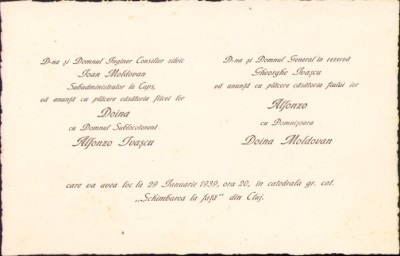 D-na și Domnul Inginer Consilier silvic
Ioan Moldovan
Subadministrator la Caps,
vă anunță cu plăcere căsătoria fiicei lor
Doina
cu Domnul Sublocotenent
Alfonzo Ivașcu
D-na și Domnul General în rezervă
Gheorghe Ivașcu
vă anunță cu plăcere căsătoria fiului lor
Alfonzo
cu Domnișoara
Doina Moldovan
care va avea loc la 29 Ianuarie 1939, ora 20, în catedrala gr. cat.
„Schimbarea la față" din Cluj.